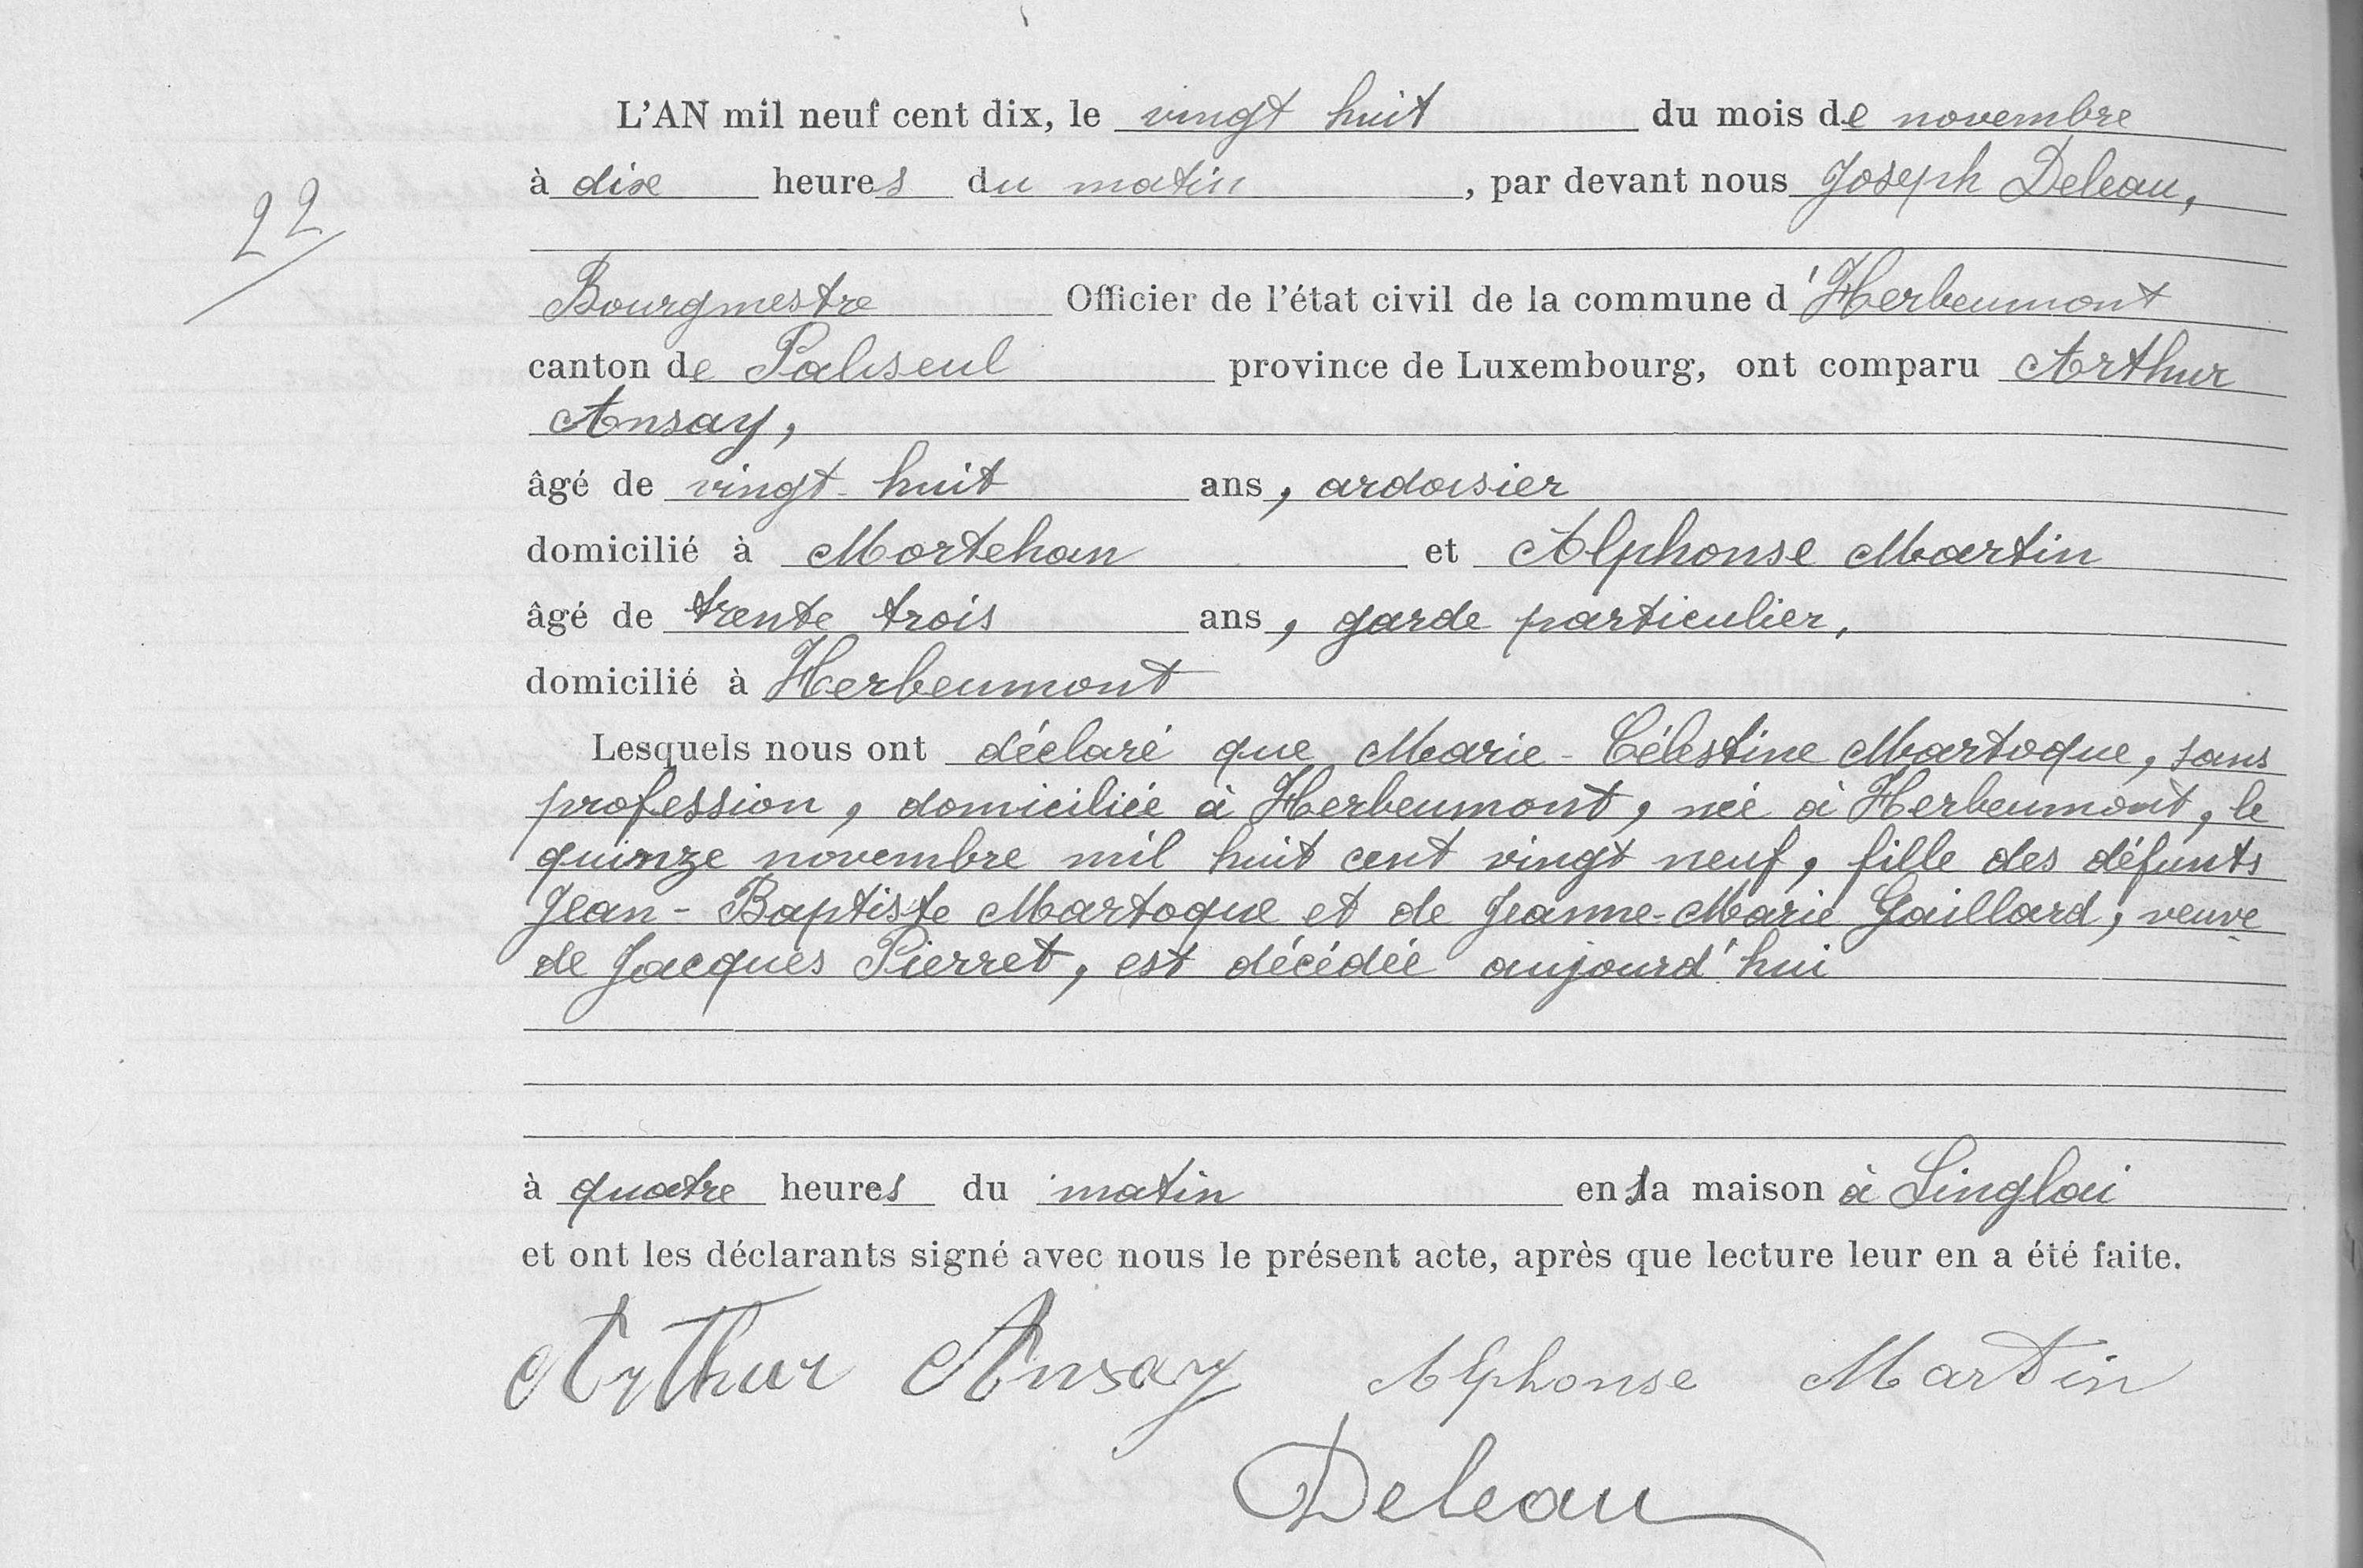 L'AN mil neuf cent dix, le vingt huit du mois de novembre
à dix heures du matin, par devant nous Joseph Deleau,
22
Bourgmestre Officier de l'état civil de la commune d'Herbeumont
canton de Paliseul province de Luxembourg, ont comparu Arthur
Ansay,
âgé de vingt-huit ans, ardoisier
domicilié à Mortehan et Alphonse Martin
âgé de trente trois ans, garde particulier,
domicilié à Herbeumont
Lesquels nous ont déclaré que Marie-Célestine Martoque, sans
profession, domiciliée à Herbeumont, née à Herbeumont, le
quinze novembre mil huit cent vingt neuf, fille des défunts
Jean-Baptiste Martoque et de Jeanne-Marie Gaillard, veuve
de Jacques Pierret, est décédée aujourd'hui
à quatre heures du matin en sa maison à Linglai
et ont les déclarants signé avec nous le présent acte, après que lecture leur en a été faite.
Arthur Ansay Alphonse Martin
Deleau